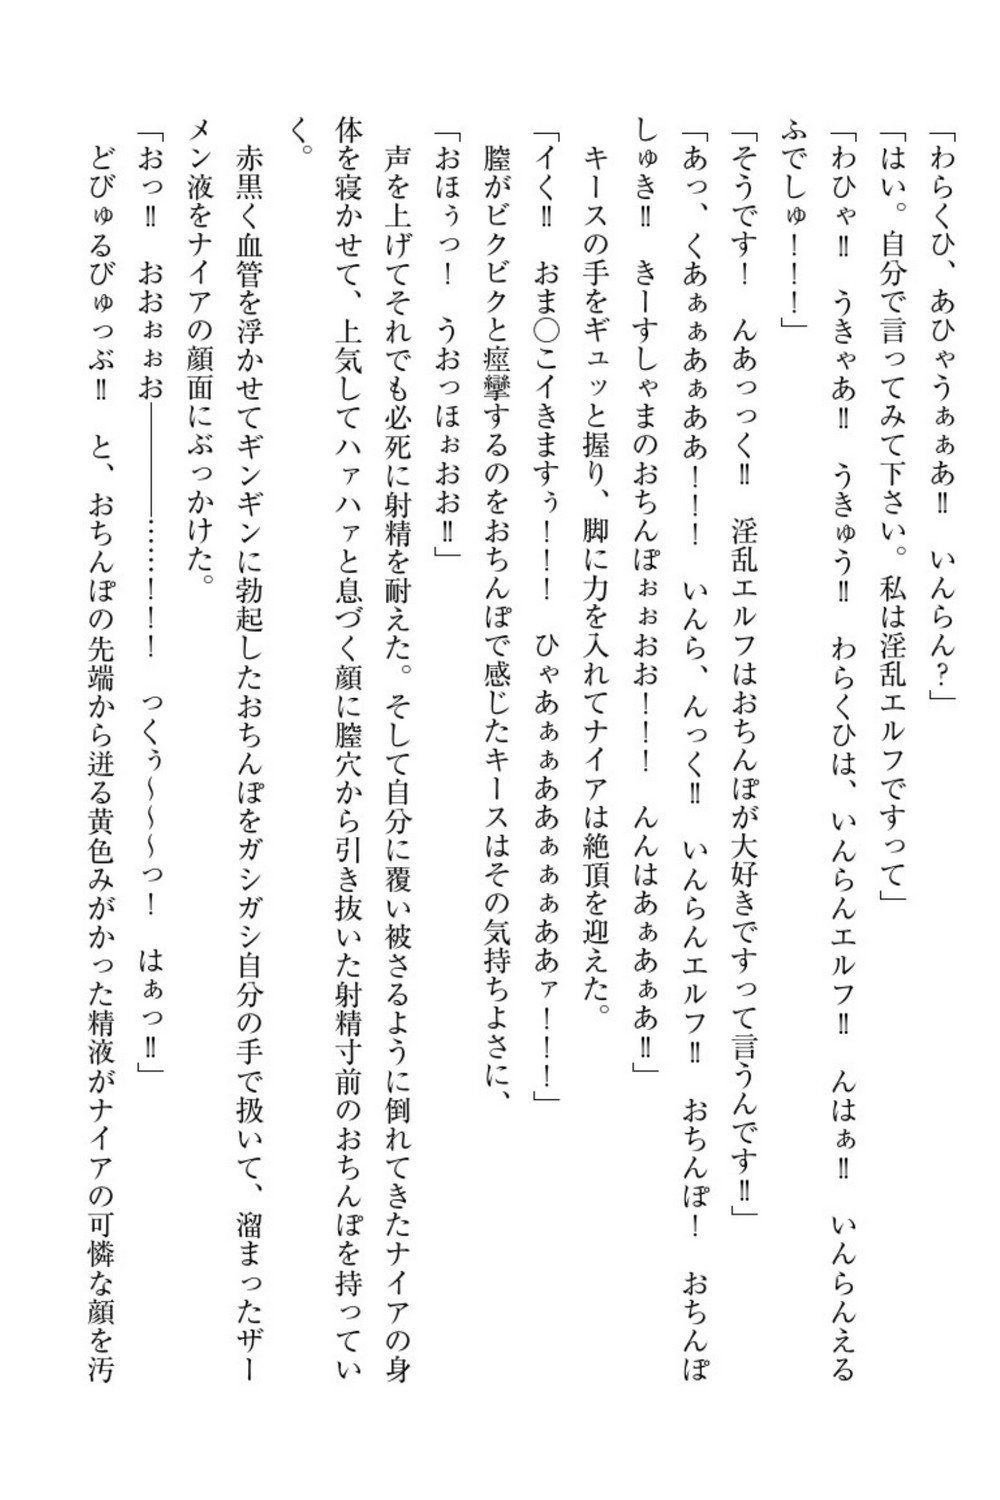 「わらくひ、あひゃうぁぁあ‼　いんらん?」
「はい。自分で言ってみて下さい。私は淫乱エルフですって」
「わひゃ‼　うきゃあ‼　うきゅう‼　わらくひは、いんらんエルフ‼　んはぁ‼　いんらんえる
ふでしゅ!!!」
「そうです!　んあっっく‼　淫乱エルフはおちんぽが大好きですって言うんです‼」
「あっ、くあぁぁあぁああ!!!　いんら、んっく‼　いんらんエルフ‼　おちんぽ!　おちんぽ
しゅき‼　きーすしゃまのおちんぽぉぉおお!!!　んんはあぁあぁあ‼」
　キースの手をギュッと握り、脚に力を入れてナイアは絶頂を迎えた。
「イく‼　おま〇こイきますぅ!!!　ひゃあぁぁああぁぁぁああァ!!!」
　膣がビクビクと痙攣するのをおちんぽで感じたキースはその気持ちよさに、
「おほぅっ!　うおっほぉおお‼」
　声を上げてそれでも必死に射精を耐えた。そして自分に覆い被さるように倒れてきたナイアの身
体を寝かせて、上気してハァハァと息づく顔に膣穴から引き抜いた射精寸前のおちんぽを持ってい
く。
　赤黒く血管を浮かせてギンギンに勃起したおちんぽをガシガシ自分の手で扱いて、溜まったザー
メン液をナイアの顔面にぶっかけた。
「おっ‼　おおぉぉお――――……!!!　っくぅ～～～っ!　はぁっ‼」
　どびゅるびゅっぶ‼　と、おちんぽの先端から迸る黄色みがかった精液がナイアの可憐な顔を汚